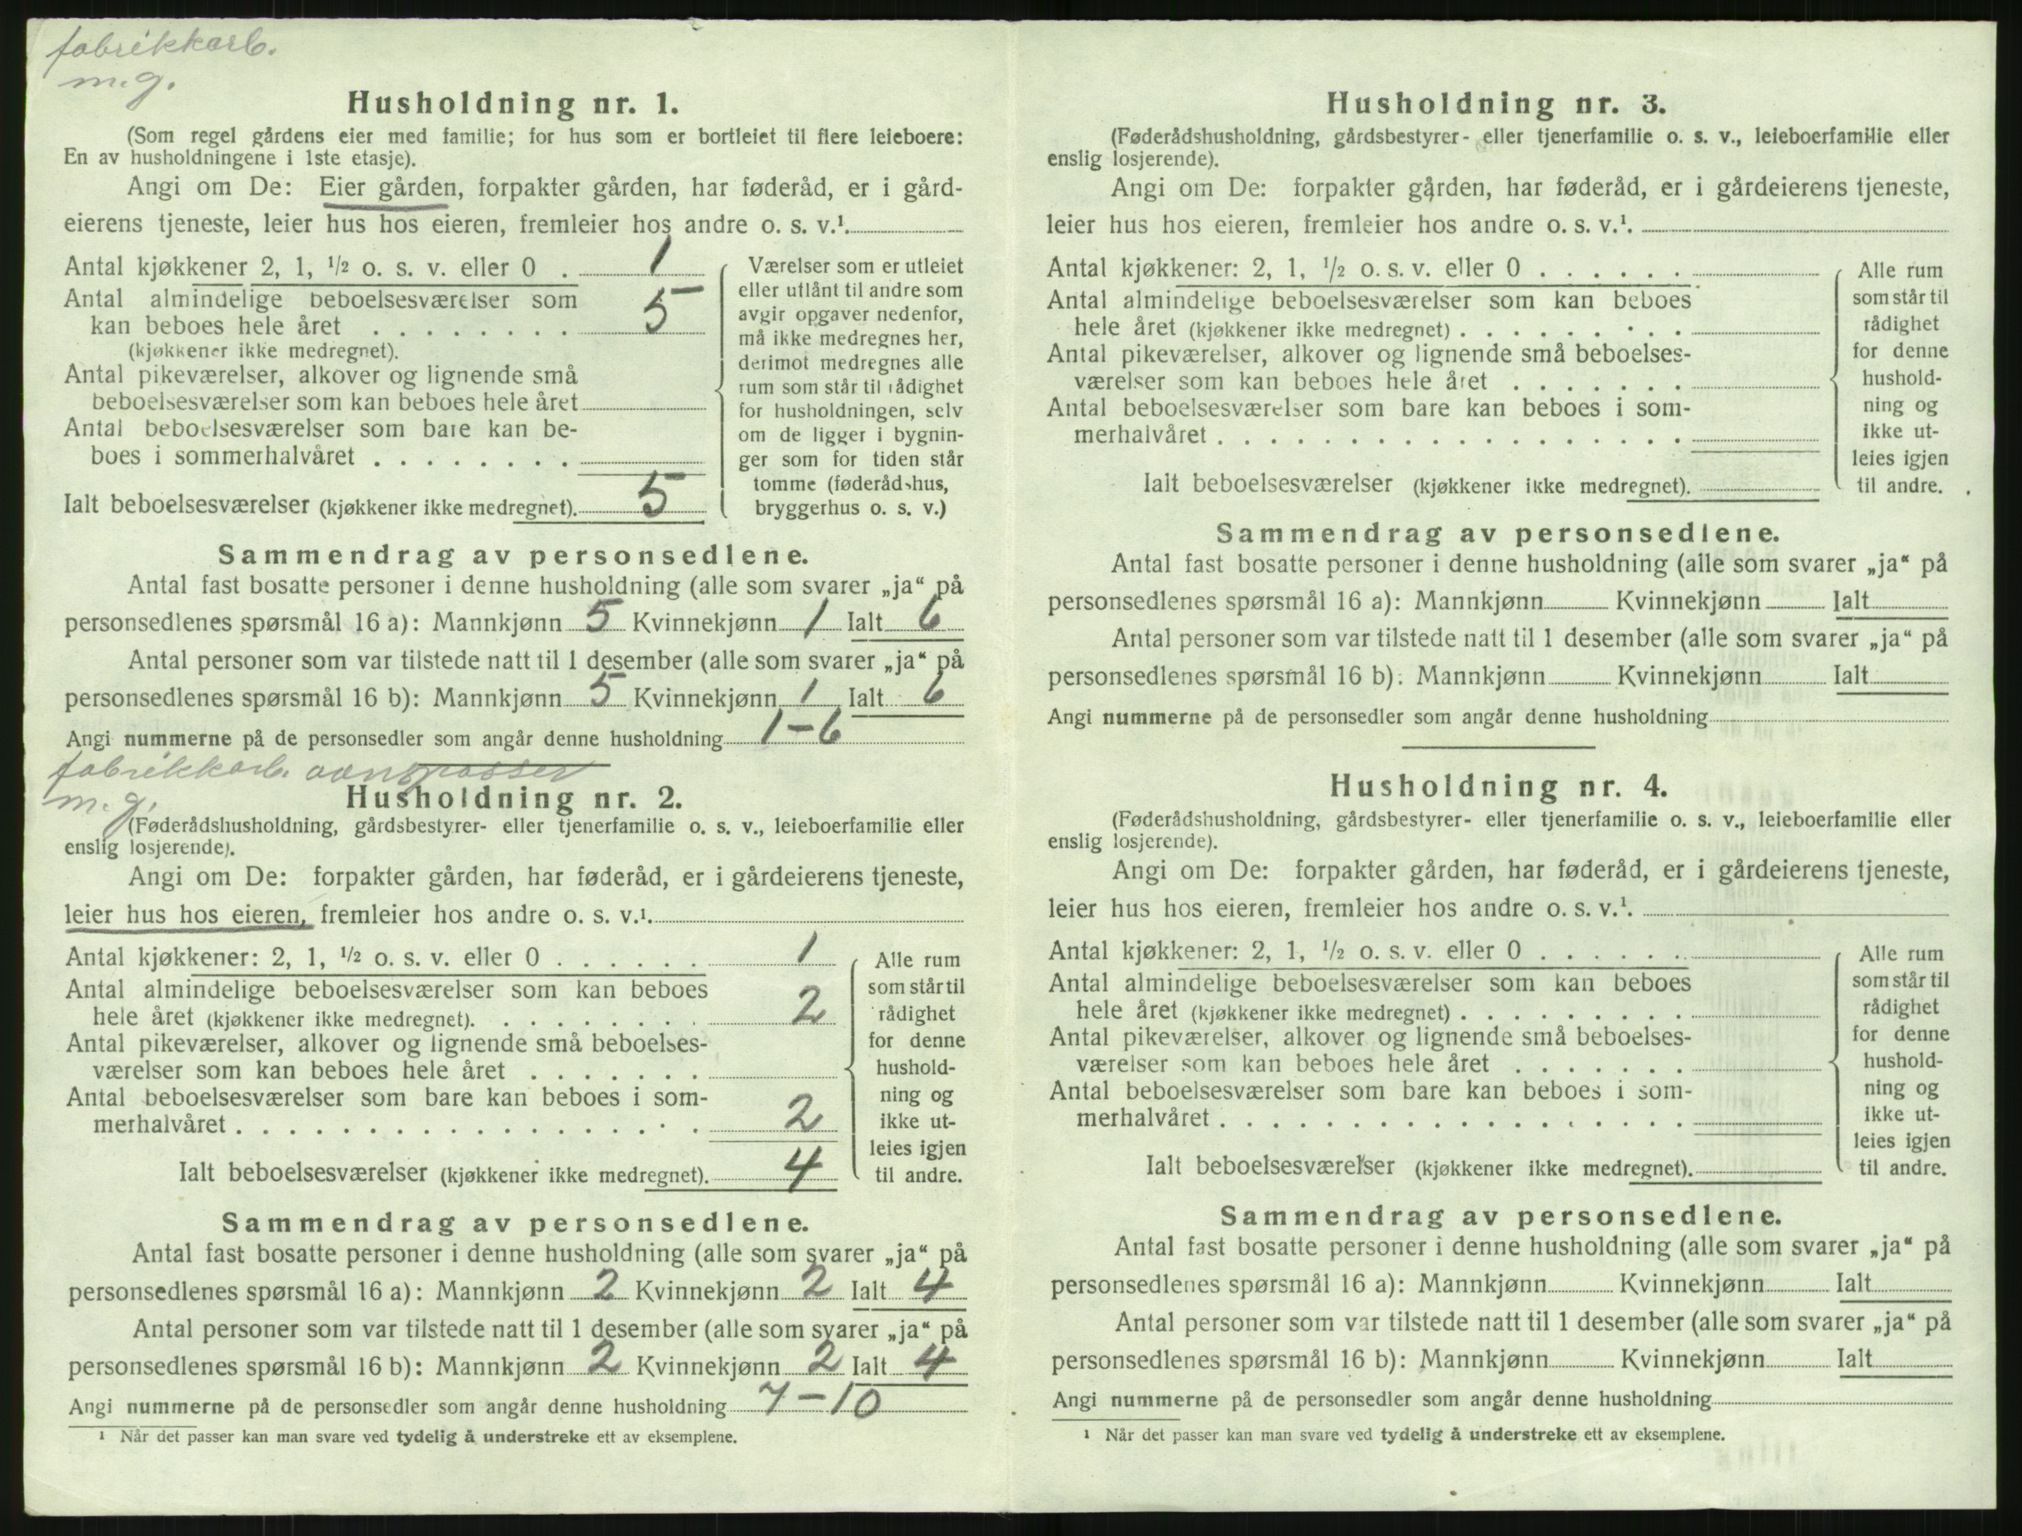 fabrikkarb.
m.g.
Husholdning nr. 1.
(Som regel gårdens eier med familie; for hus som er bortleiet til flere leieboere:
En av husholdningene i 1ste etasje).
Angi om De: Eier gården, forpakter gården, har føderåd, er i gård-
eierens tjeneste, leier hus hos eieren, fremleier hos andre o. s. v.¹.
Antal kjøkkener 2, 1, ½ o. s. v. eller 0 . 1
Antal almindelige beboelsesværelser som
kan beboes hele året . . . . . . . . 5
(kjøkkener ikke medregnet).
Antal pikeværelser, alkover og lignende små
beboelsesværelser som kan beboes hele året
Antal beboelsesværelser som bare kan be-
boes i sommerhalvåret . . . . . . . .
Ialt beboelsesværelser (kjøkkener ikke medregnet). 5
Værelser som er utleiet
eller utlånt til andre som
avgir opgaver nedenfor,
må ikke medregnes her,
derimot medregnes alle
rum som står til rådighet
for husholdningen, selv
om de ligger i bygnin-
ger som for tiden står
tomme (føderådshus,
bryggerhus o. s. v.)
Sammendrag av personsedlene.
Antal fast bosatte personer i denne husholdning (alle som svarer „ja“ på
personsedlenes spørsmål 16 a): Mannkjønn 5 Kvinnekjønn 1 Ialt 6
Antal personer som var tilstede natt til 1 desember (alle som svarer „ja“ på
personsedlenes spørsmål 16 b): Mannkjønn 5 Kvinnekjønn 1 Ialt 6
Angi nummerne på de personsedler som angår denne husholdning 1-6
fabrikkarb.
m.g.
Husholdning nr. 2.
(Føderådshusholdning, gårdsbestyrer- eller tjenerfamilie o. s. v., leieboerfamilie eller
enslig losjerende).
Angi om De: forpakter gården, har føderåd, er i gårdeierens tjeneste,
leier hus hos eieren, fremleier hos andre o. s. v.¹.
Antal kjøkkener: 2, 1, ½ o. s. v. eller 0 . . . . . . 1
Antal almindelige beboelsesværelser som kan beboes
hele året (kjøkkener ikke medregnet). . . . . . . . . 2
Antal pikeværelser, alkover og lignende små beboelses-
værelser som kan beboes hele året . . . . . . .
Antal beboelsesværelser som bare kan beboes i som-
merhalvåret . . . . . . . . . . . . . . . . . . 2
Ialt beboelsesværelser (kjøkkener ikke medregnet). 4
Alle rum
som står til
rådighet
for denne
hushold-
ning og
ikke ut-
leies igjen
til andre.
Sammendrag av personsedlene.
Antal fast bosatte personer i denne husholdning (alle som svarer „ja“ på
personsedlenes spørsmål 16 a): Mannkjønn 2 Kvinnekjønn 2 Ialt 4
Antal personer som var tilstede natt til 1 desember (alle som svarer „ja“ på
personsedlenes spørsmål 16 b): Mannkjønn 2 Kvinnekjønn 2 Ialt 4
Angi nummerne på de personsedler som angår denne husholdning 7-10
¹ Når det passer kan man svare ved tydelig å understreke ett av eksemplene.
Husholdning nr. 3.
(Føderådshusholdning, gårdsbestyrer- eller tjenerfamilie o. s. v., leieboerfamilie eller
enslig losjerende).
Angi om De: forpakter gården, har føderåd, er i gårdeierens tjeneste,
leier hus hos eieren, fremleier hos andre o. s. v.¹.
Antal kjøkkener: 2, 1, ½ o. s. v. eller 0 . . . . . .
Antal almindelige beboelsesværelser som kan beboes
hele året (kjøkkener ikke medregnet) . . . . . . . . .
Antal pikeværelser, alkover og lignende små beboelses-
værelser som kan beboes hele året . . . . . . .
Antal beboelsesværelser som bare kan beboes i som-
merhalvåret . . . . . . . . . . . . . . . . . .
Ialt beboelsesværelser (kjøkkener ikke medregnet).
Alle rum
som står til
rådighet
for denne
hushold-
ning og
ikke ut-
leies igjen
til andre.
Sammendrag av personsedlene.
Antal fast bosatte personer i denne husholdning (alle som svarer „ja“ på
personsedlenes spørsmål 16 a): Mannkjønn Kvinnekjønn Ialt
Antal personer som var tilstede natt til 1 desember (alle som svarer „ja“ på
personsedlenes spørsmål 16 b): Mannkjønn Kvinnekjønn Ialt
Angi nummerne på de personsedler som angår denne husholdning
Husholdning nr. 4.
(Føderådshusholdning, gårdsbestyrer- eller tjenerfamilie o. s. v., leieboerfamilie eller
enslig losjerende).
Angi om De: forpakter gården, har føderåd, er i gårdeierens tjeneste,
leier hus hos eieren, fremleier hos andre o. s. v.¹.
Antal kjøkkener: 2, 1, ½ o. s. v. eller 0 . . . . . .
Antal almindelige beboelsesværelser som kan beboes
hele året (kjøkkener ikke medregnet) . . . . . . . . .
Antal pikeværelser, alkover og lignende små beboelses-
værelser som kan beboes hele året . . . . . . .
Antal beboelsesværelser som bare kan beboes i som-
merhalvåret . . . . . . . . . . . . . . . . . .
Ialt beboelsesværelser (kjøkkener ikke medregnet).
Alle rum
som står til
rådighet
for denne
hushold-
ning og
ikke ut-
leies igjen
til andre.
Sammendrag av personsedlene.
Antal fast bosatte personer i denne husholdning (alle som svarer „ja“ på
personsedlenes spørsmål 16 a): Mannkjønn Kvinnekjønn Ialt
Antal personer som var tilstede natt til 1 desember (alle som svarer „ja“ på
personsedlenes spørsmål 16 b): Mannkjønn Kvinnekjønn Ialt
Angi nummerne på de personsedler som angår denne husholdning
¹ Når det passer kan man svare ved tydelig å understreke ett av eksemplene.